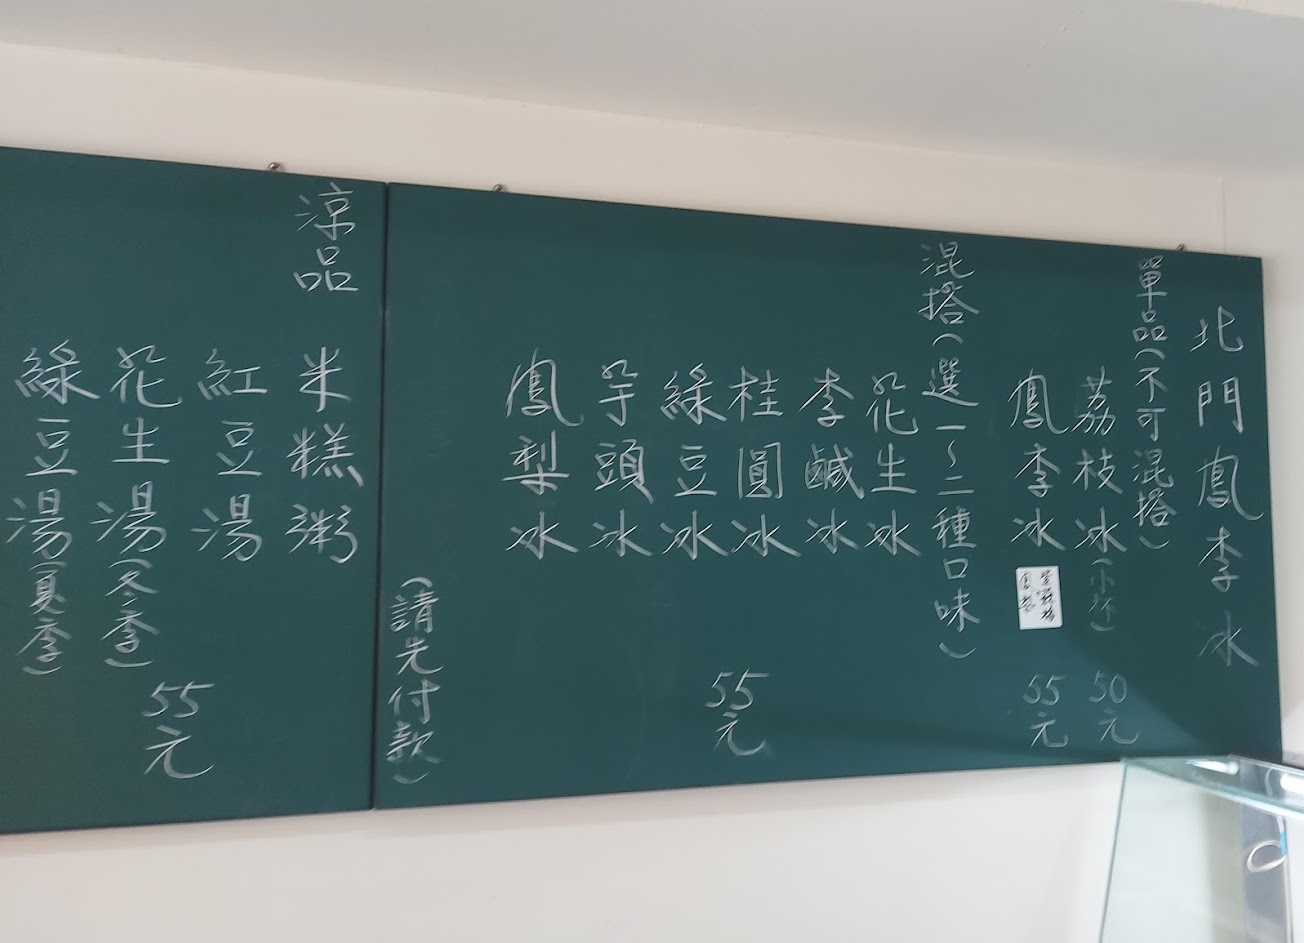 北門鳳李冰
單品(不可混搭)
荔枝冰(小杯) 50元
鳳李冰 55元
混搭(選一~二種口味)
花生冰
李鹹冰
桂圓冰
綠豆冰
芋頭冰
鳳梨冰
55元
(請先付款)
涼品
米糕粥
紅豆湯
花生湯(冬季)
綠豆湯(夏季)
55元